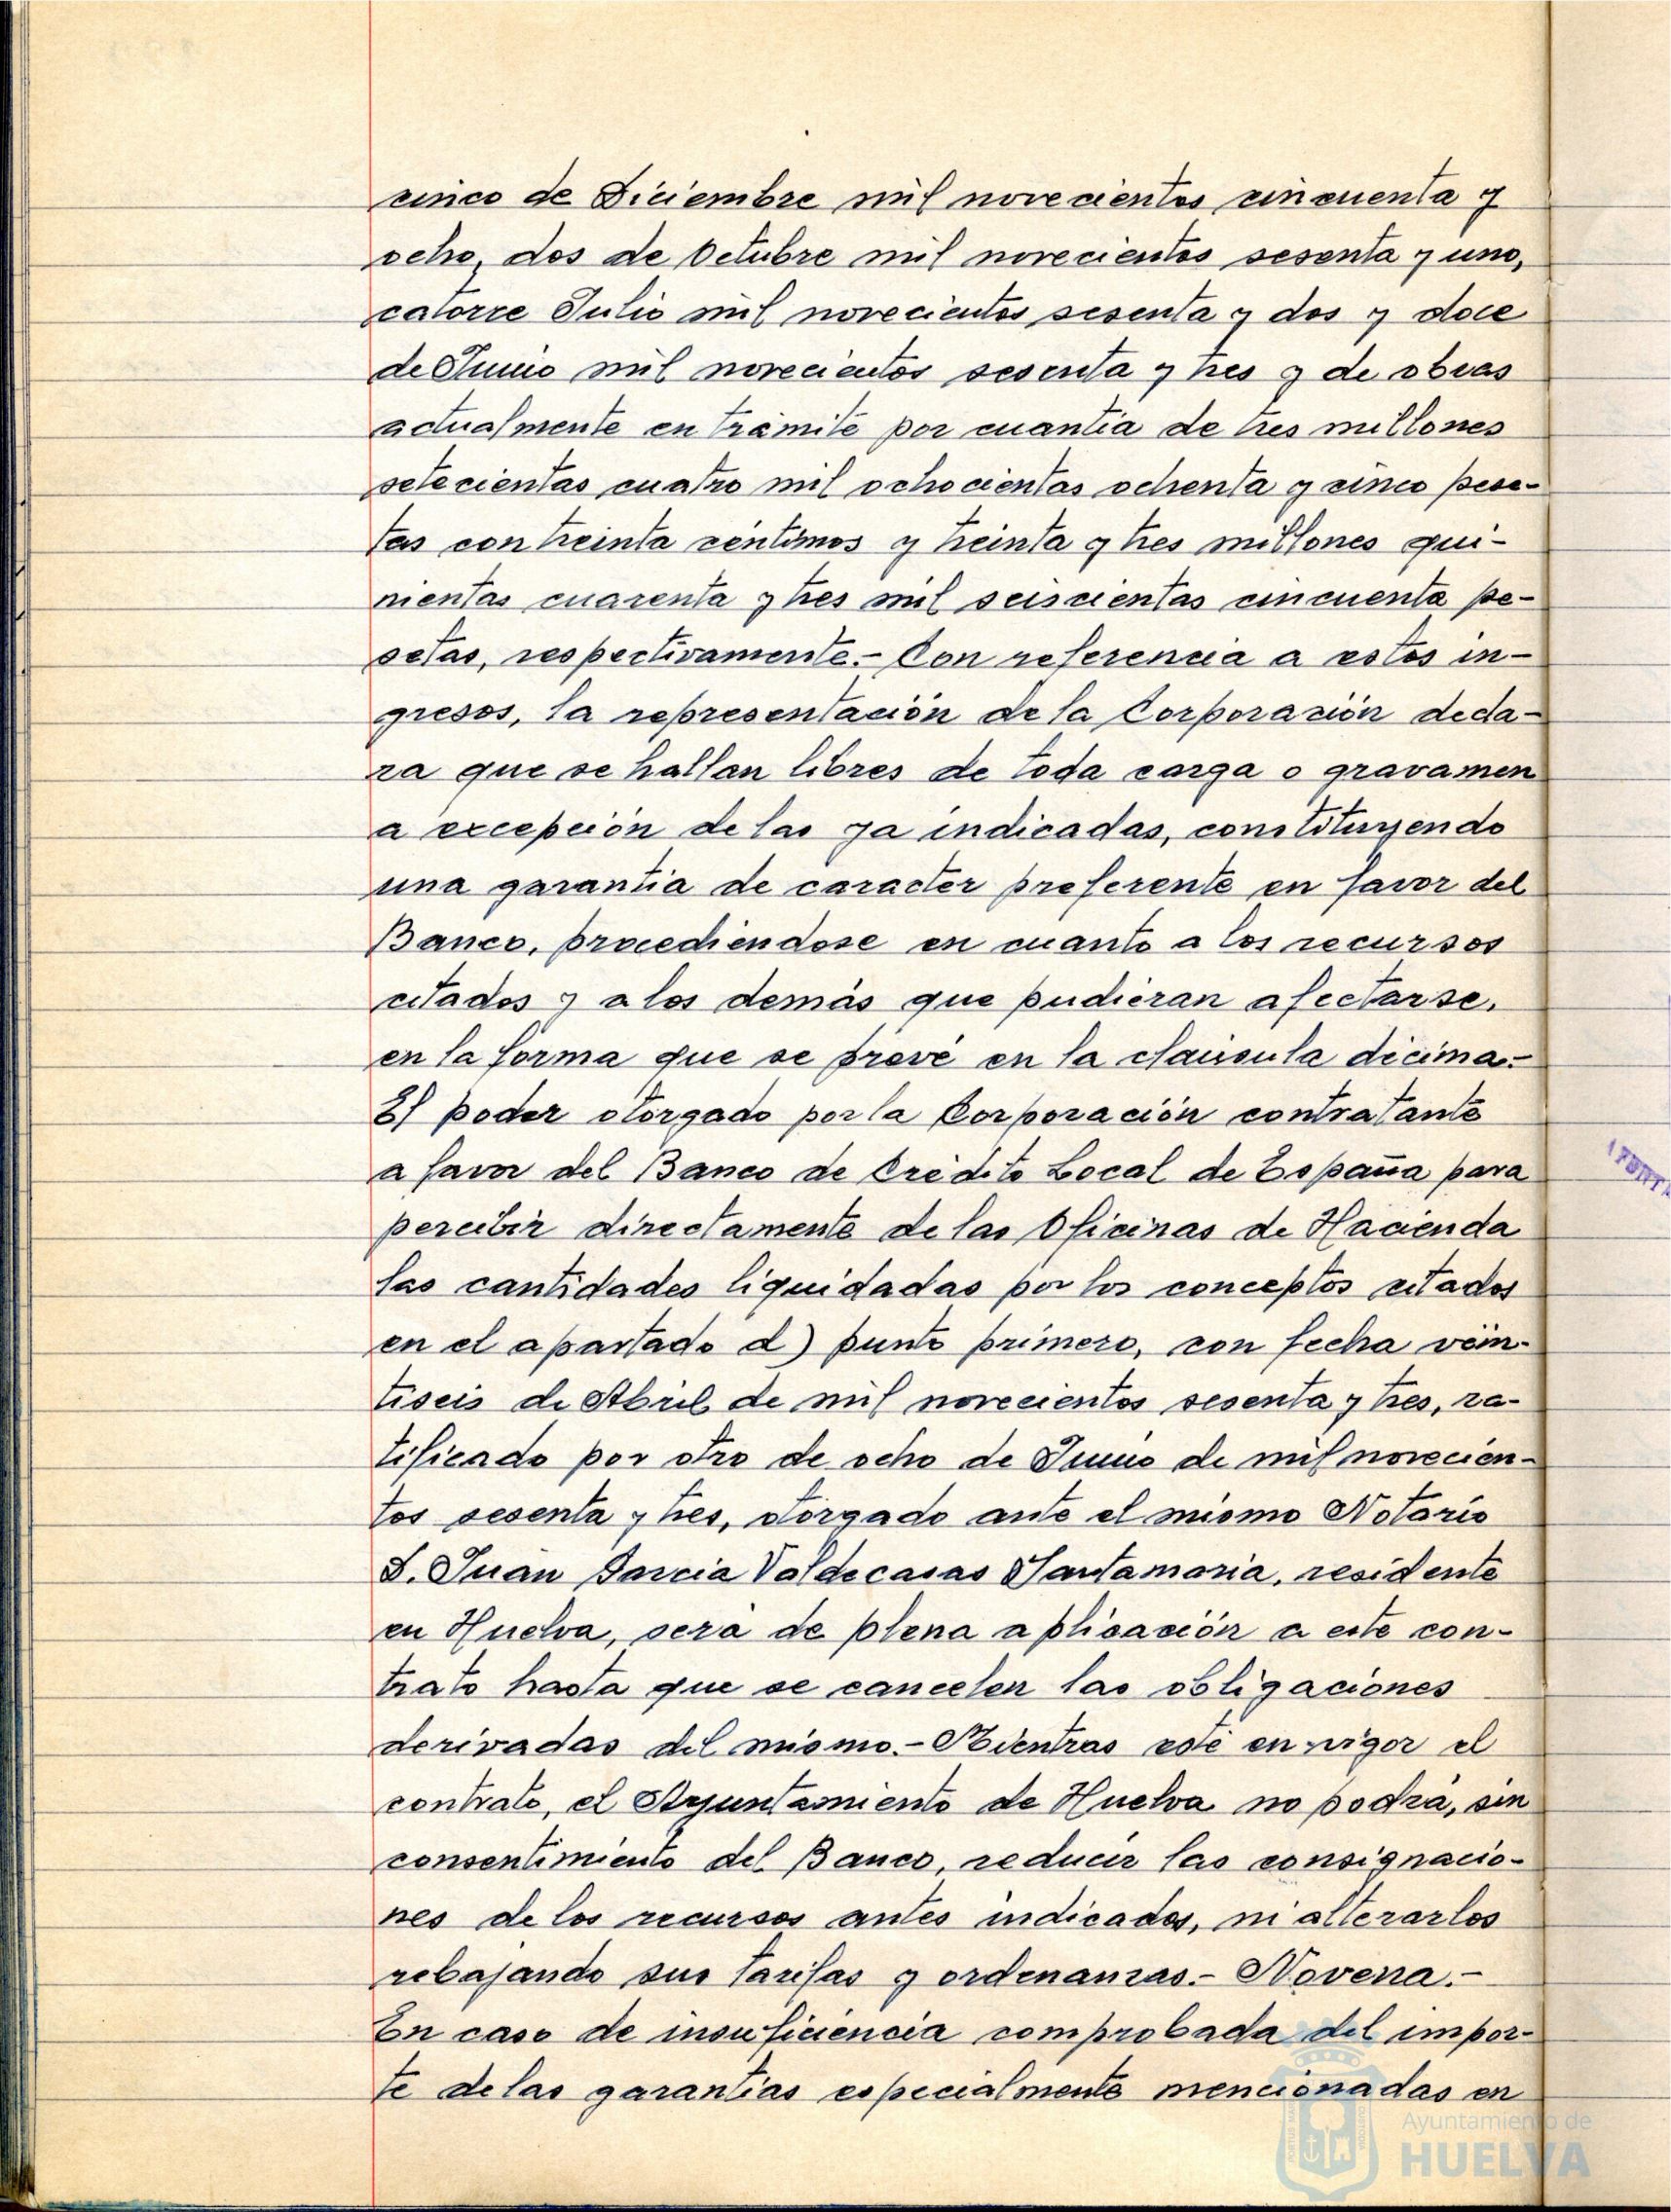 cinco de Diciembre mil novecientos cincuenta y
ocho, dos de Octubre mil novecientos sesenta y uno,
catorce Julio mil novecientos sesenta y dos y doce
de Junio mil novecientos sesenta y tres y de obras
actualmente en trámite por cuantia de tres millones
setecientas cuatro mil ochocientas ochenta y cinco pese-
tas con treinta céntimos y treinta y tres millones qui-
nientas cuarenta y tres mil seiscientas cincuenta pe-
setas, respectivamente.- Con referencia a estos in-
gresos, la representación de la Corporación decla-
ra que se hallan libres de toda carga o gravamen
a excepción de las ya indicadas, constituyendo
una garantia de caracter preferente en favor del
Banco, procediéndose en cuanto a los recursos
citados y a los demás que pudieran afectarse,
en la forma que se prevé en la cláusula décima.-
El poder otorgado por la Corporación contratante
a favor del Banco de Crédito Local de España para
percibir directamente de las Oficinas de Hacienda
las cantidades liquidadas por los conceptos citados
en el apartado d) punto primero, con fecha vein-
tiseis de Abril de mil novecientos sesenta y tres, ra-
tificado por otro de ocho de Junio de mil novecien-
tos sesenta y tres, otorgado ante el mismo Notario
D. Juan Garcia Valdecasas Santamaria, residente
en Huelva, será de plena aplicación a este con-
trato hasta que se cancelen las obligaciones
derivadas del mismo.- Mientras esté en vigor el
contrato, el Ayuntamiento de Huelva no podrá, sin
consentimiento del Banco, reducir las consignacio-
nes de los recursos antes indicados, ni alterarlos
rebajando sus tarifas y ordenanzas.- Novena.-
En caso de insuficiencia comprobada del impor-
te de las garantías especialmente mencionadas en
Ayuntamiento de
HUELVA